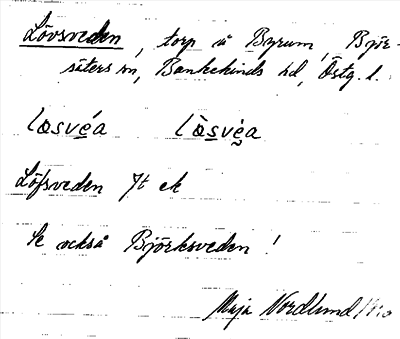 Lövsveden, torp å Byrum, Björ-
säters sn, Bankekinds hd, Östg. l.
løsvéa   lø̀svéa
Löfsveden Jt ek
Se också Björksveden!
Maja Nordlund